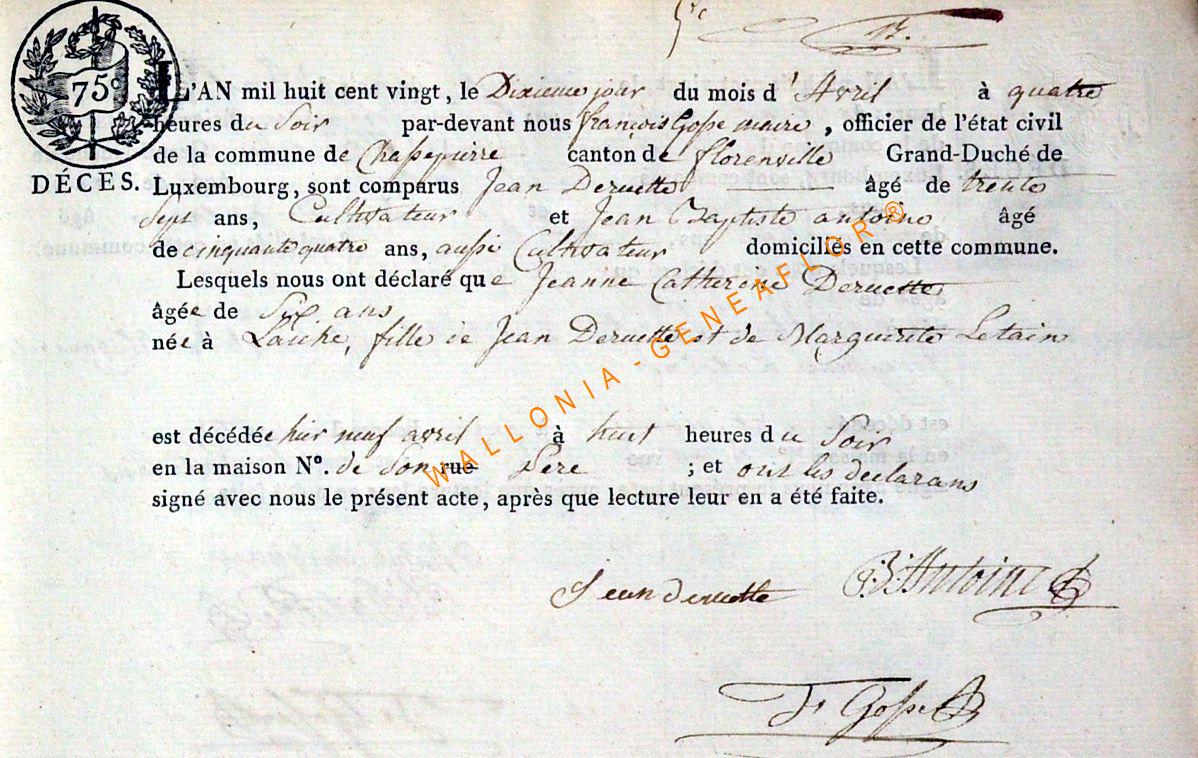 75c
L'AN mil huit cent vingt, le Dixieme jour du mois d'Avril à quatre
heures du Soir par-devant nous françois Gosse maire, officier de l'état civil
de la commune de Chassepierre canton de florenville Grand-Duché de
DÉCÈS. Luxembourg, sont comparus Jean Deruette âgé de trente
Sept ans, Cultivateur et Jean Baptiste antoine âgé
de cinquante quatre ans, aussi Cultivateur domiciliés en cette commune.
Lesquels nous ont déclaré que Jeanne Catherine Deruette
âgée de Six ans
née à Laiche, fille de Jean Deruette et de Marguerite Letain
est décédée hier neuf avril à huit heures du Soir
en la maison N°. de Son rue Pere ; et ont les declarans
signé avec nous le présent acte, après que lecture leur en a été faite.
Jean deruette JBAntoine
Fs Gosse
WALLONIA - GENEAFLOR®